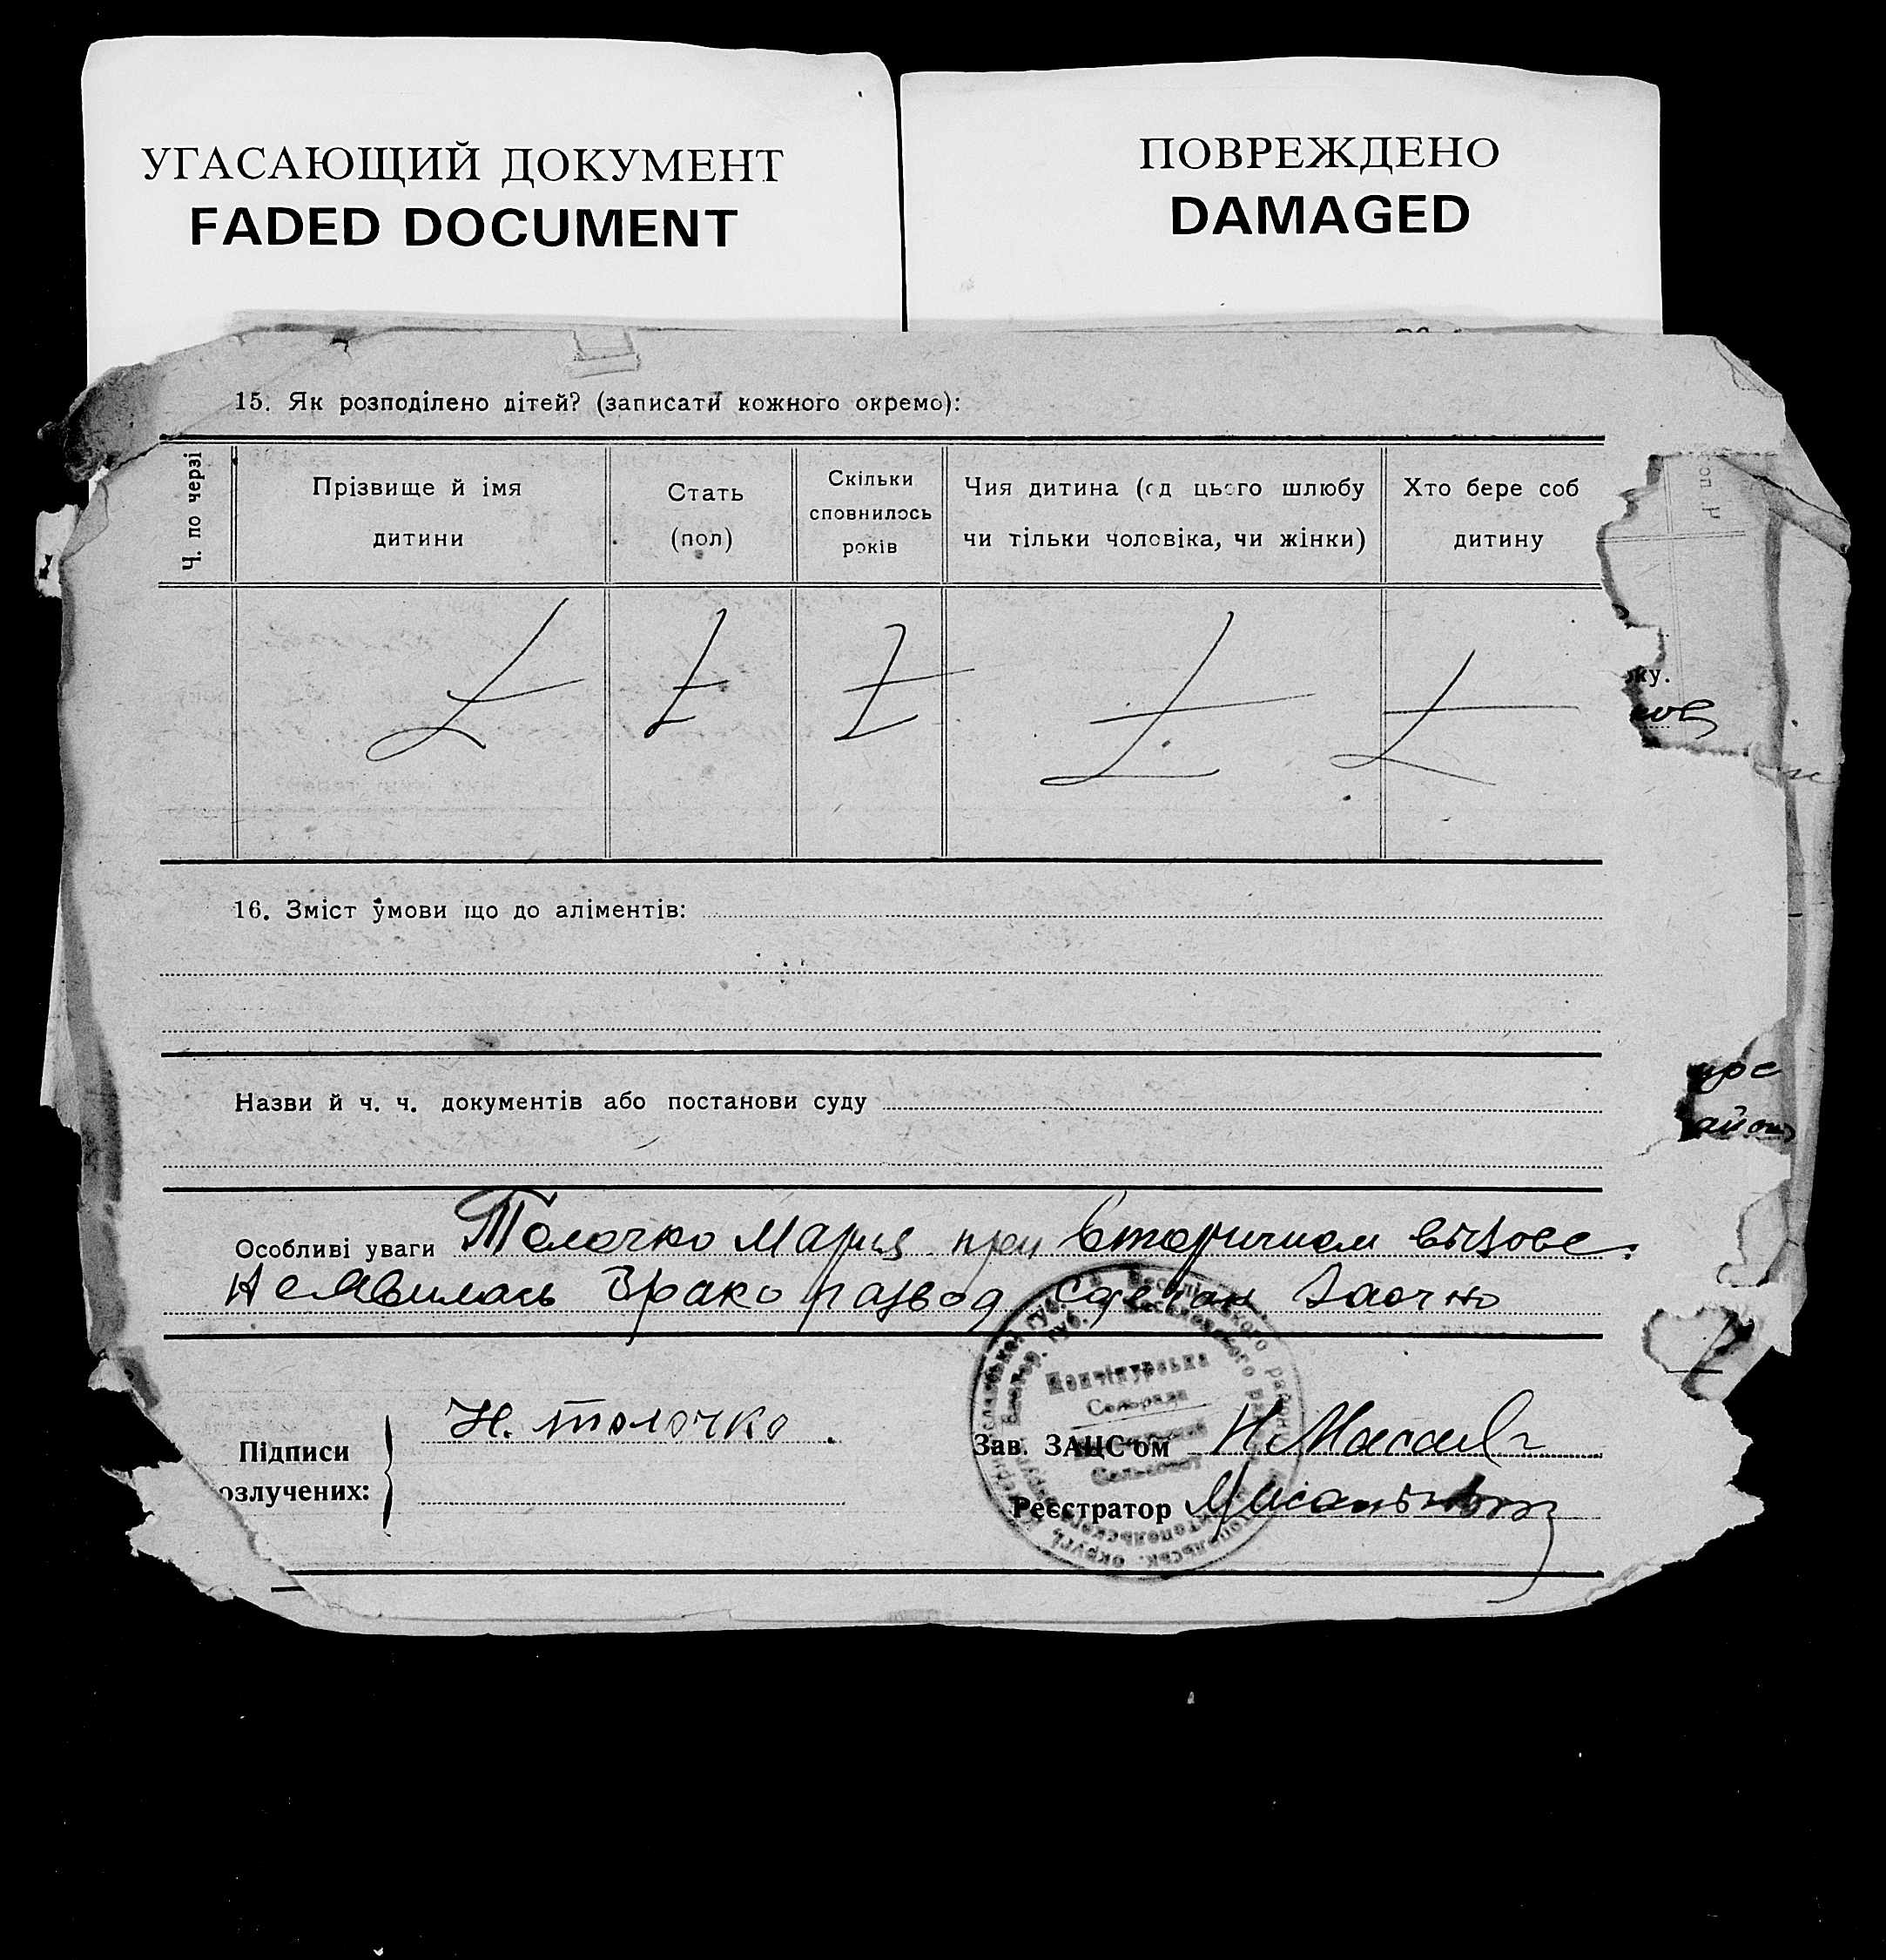 УГАСАЮЩИЙ ДОКУМЕНТ
FADED DOCUMENT
ПОВРЕЖДЕНО
DAMAGED
15. Як розподілено дітей? (записати кожного окремо):
Ч. по черзі
Прізвище й імя
дитини
Стать
(пол)
Скільки
сповнилось
років
Чия дитина (од цього шлюбу
чи тільки чоловіка, чи жінки)
Хто бере соб
дитину
ку.
16. Зміст умови що до аліментів:
Назви й ч. ч. документів або постанови суду
Особливі уваги Толочко Мария при вторичном вызове
не явилась Брако развод сделан Заочно
Підписи
озлучених:
Н. толочко.
Сельрада
Зав. ЗАЦС'ом
Реєстратор